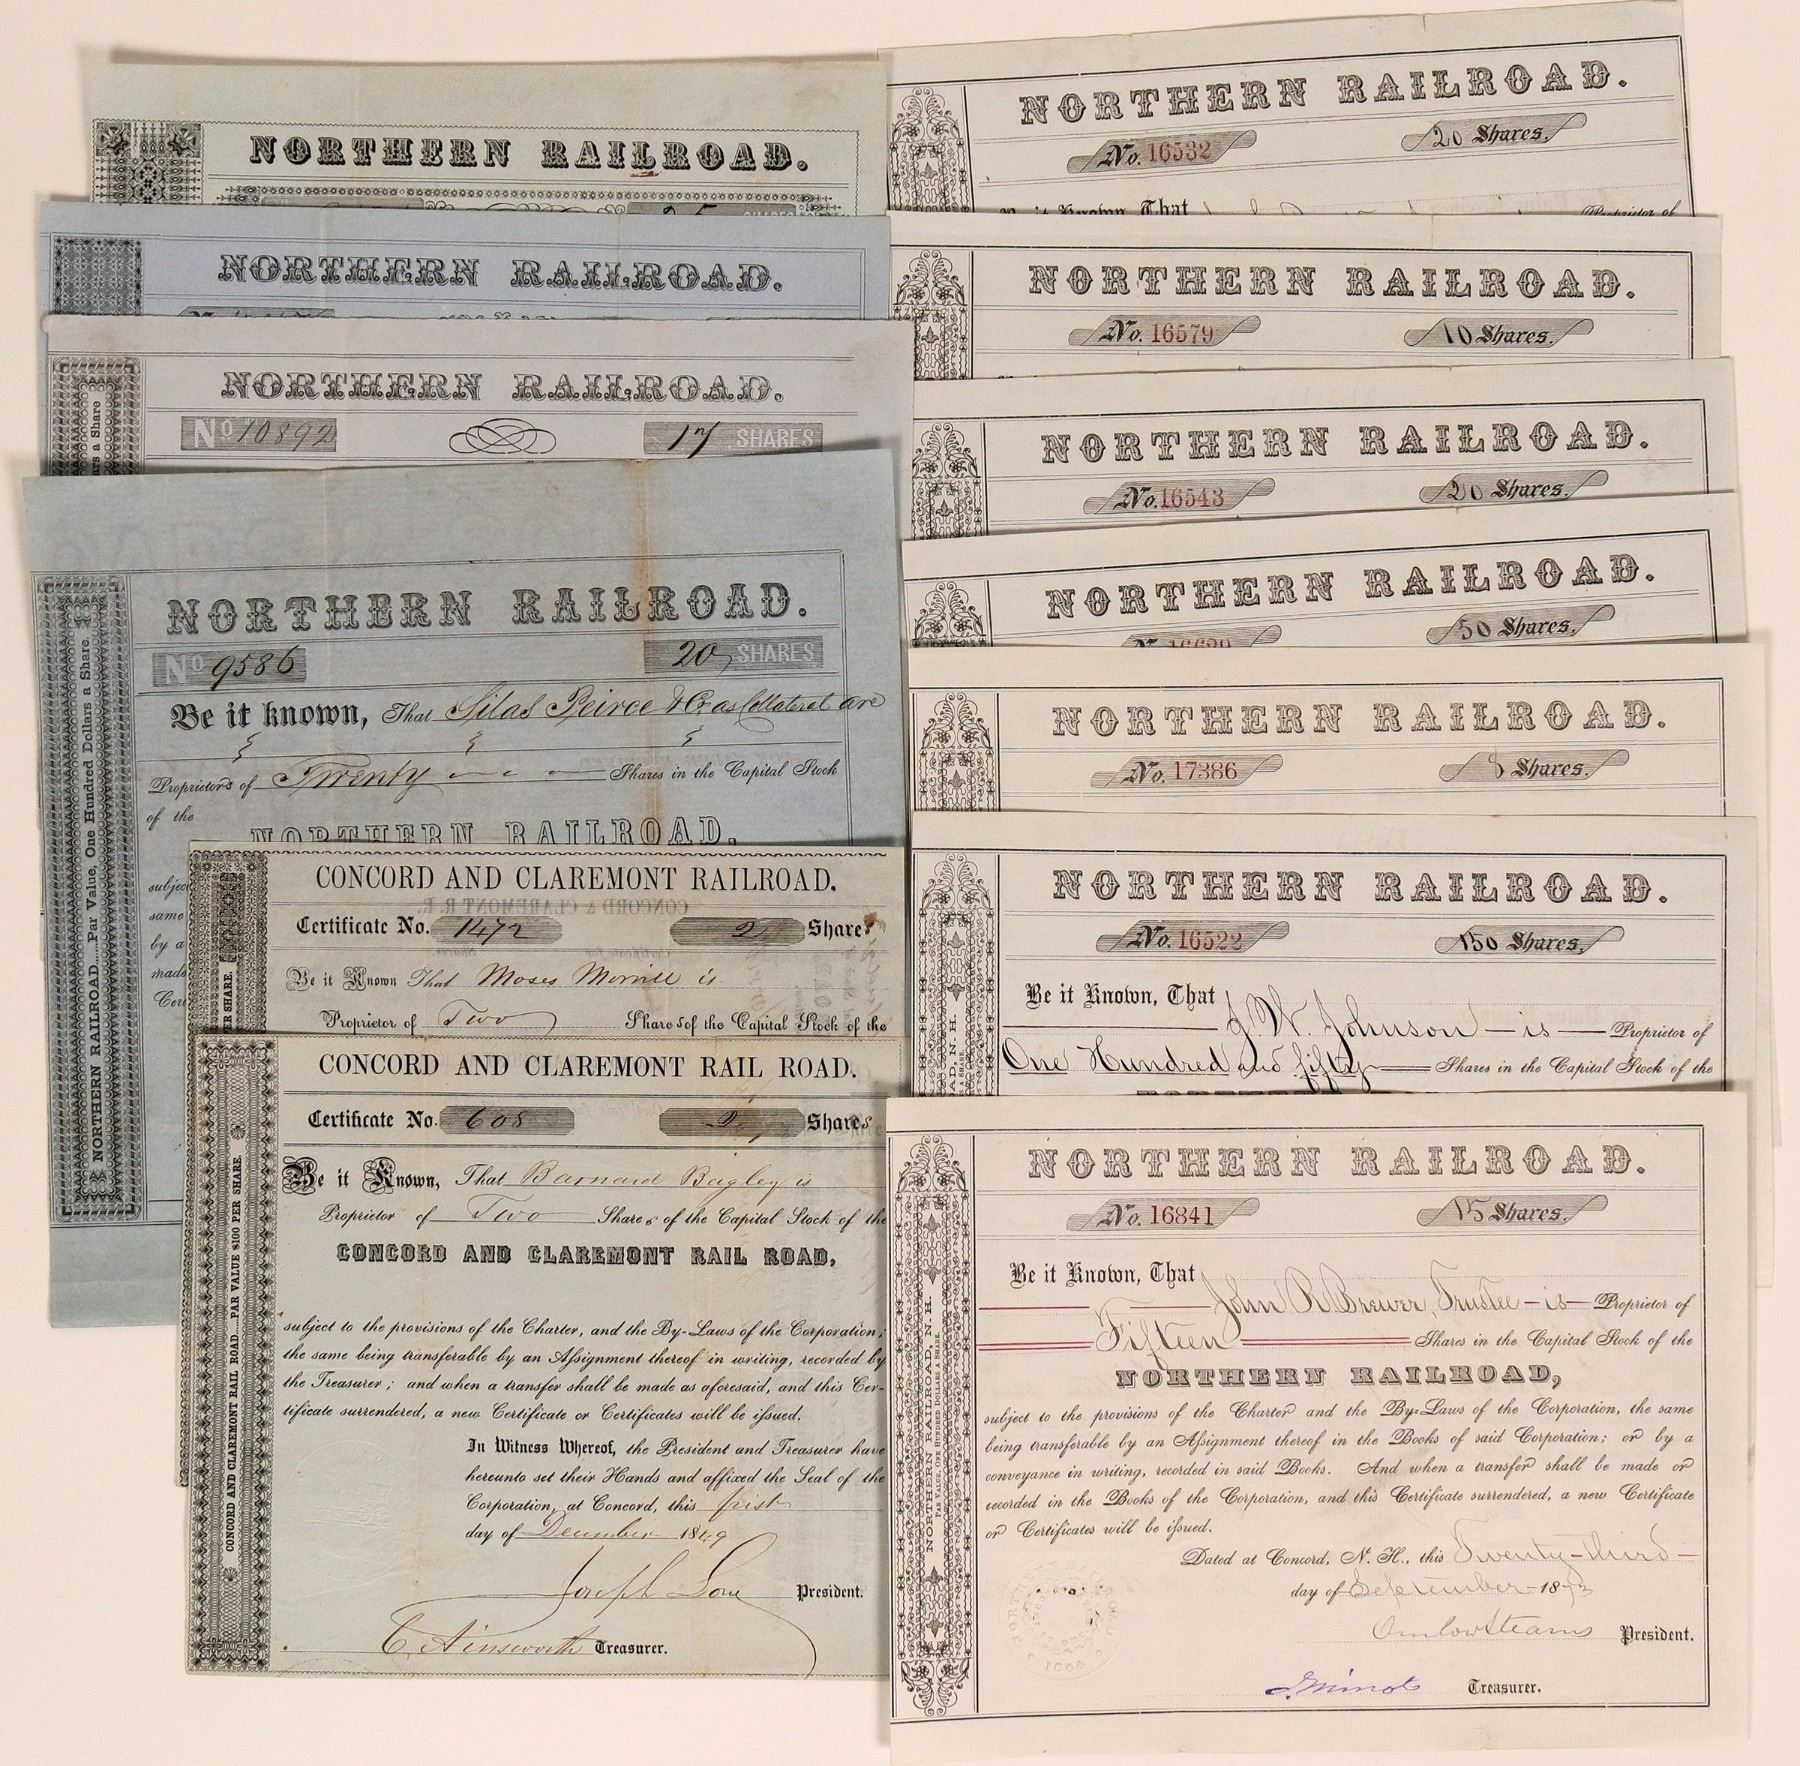 NORTHERN RAILROAD.
25 SHARES
NORTHERN RAILROAD.
NORTHERN RAILROAD.
No 10892
17 SHARES
ars a Share
NORTHERN RAILROAD.
No 9586
20 SHARES
Be it known, That Silas Peirce & Co as Collateral are
Proprietors of Twenty Shares in the Capital Stock
of the
NORTHERN RAILROAD.
subjec
same
by a
made
Cer
NORTHERN RAILROAD.....Par Value, One Hundred Dollars a Share.
CONCORD AND CLAREMONT RAILROAD.
CONCORD & CLAREMONT R. R.
Certificate No. 1472
2 Shares
Be it Known That Moses Morrill is
Proprietor of Two Shares of the Capital Stock of the
ER SHARE.
CONCORD AND CLAREMONT RAIL ROAD.
Certificate No. 608
2 Shares
Be it Known, That Barnard Bagley is
Proprietor of Two Shares of the Capital Stock of the
CONCORD AND CLAREMONT RAIL ROAD,
subject to the provisions of the Charter, and the By-Laws of the Corporation;
the same being transferable by an Assignment thereof in writing, recorded by
the Treasurer; and when a transfer shall be made as aforesaid, and this Cer-
tificate surrendered, a new Certificate or Certificates will be issued.
In Witness Whereof, the President and Treasurer have
hereunto set their Hands and affixed the Seal of the
Corporation, at Concord, this first
day of December 1849
Joseph Low President.
C. Ainsworth Treasurer.
CONCORD AND CLAREMONT RAIL ROAD....PAR VALUE $100 PER SHARE.
NORTHERN RAILROAD.
No. 16532
20 Shares.
Be it Known, That
Proprietor of
NORTHERN RAILROAD.
No. 16579
10 Shares.
NORTHERN RAILROAD.
No. 16543
20 Shares.
NORTHERN RAILROAD.
50 Shares.
NORTHERN RAILROAD.
No. 17386
8 Shares.
NORTHERN RAILROAD.
No. 16522
150 Shares.
Be it Known, That J. W. Johnson is Proprietor of
One Hundred and fifty Shares in the Capital Stock of the
AD, N. H.
A SHARE.
NORTHERN RAILROAD.
No. 16841
15 Shares.
Be it Known, That John R. Brewer, Trustee is Proprietor of
Fifteen Shares in the Capital Stock of the
NORTHERN RAILROAD,
subject to the provisions of the Charter and the By-Laws of the Corporation, the same
being transferable by an Assignment thereof in the Books of said Corporation; or by a
conveyance in writing, recorded in said Books. And when a transfer shall be made or
recorded in the Books of the Corporation, and this Certificate surrendered, a new Certificate
or Certificates will be issued.
Dated at Concord, N. H., this Twenty-third
day of September 1873
Onslow Stearns President.
J. Minot Treasurer.
NORTHERN RAILROAD, N. H.
PAR VALUE, ONE HUNDRED DOLLARS A SHARE.